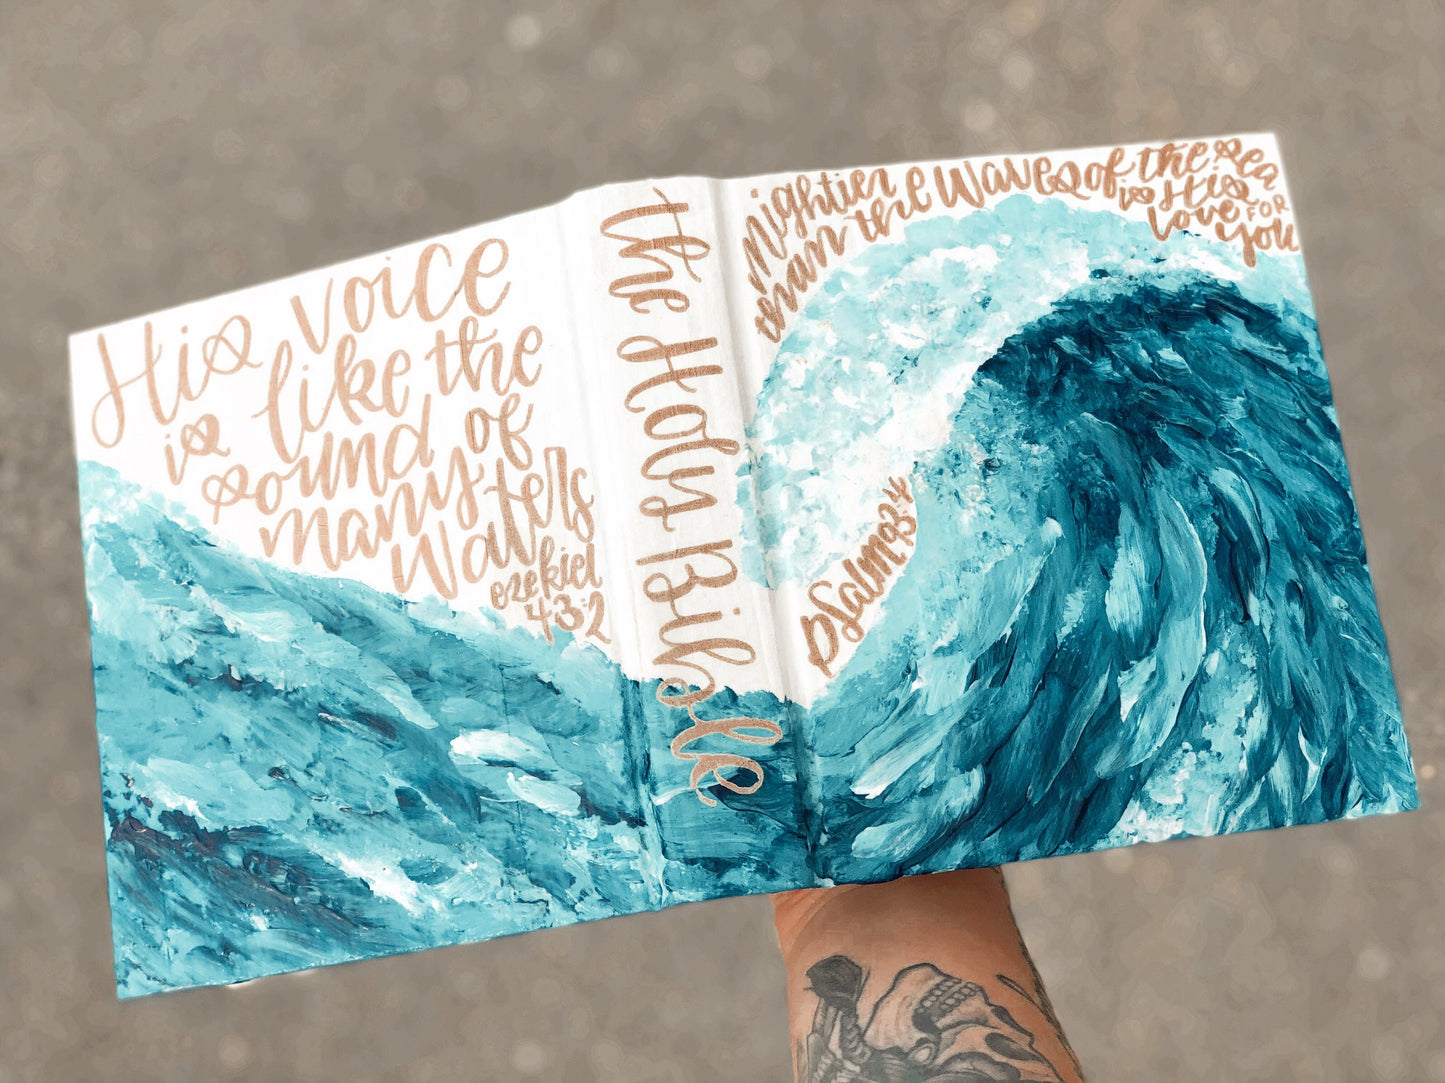 His voice
is like the
sound of
many
waters
ezekiel
43:2
the Holy Bible
Mightier
than the waves of the sea
is His
love FOR
you
Psalm 93:4